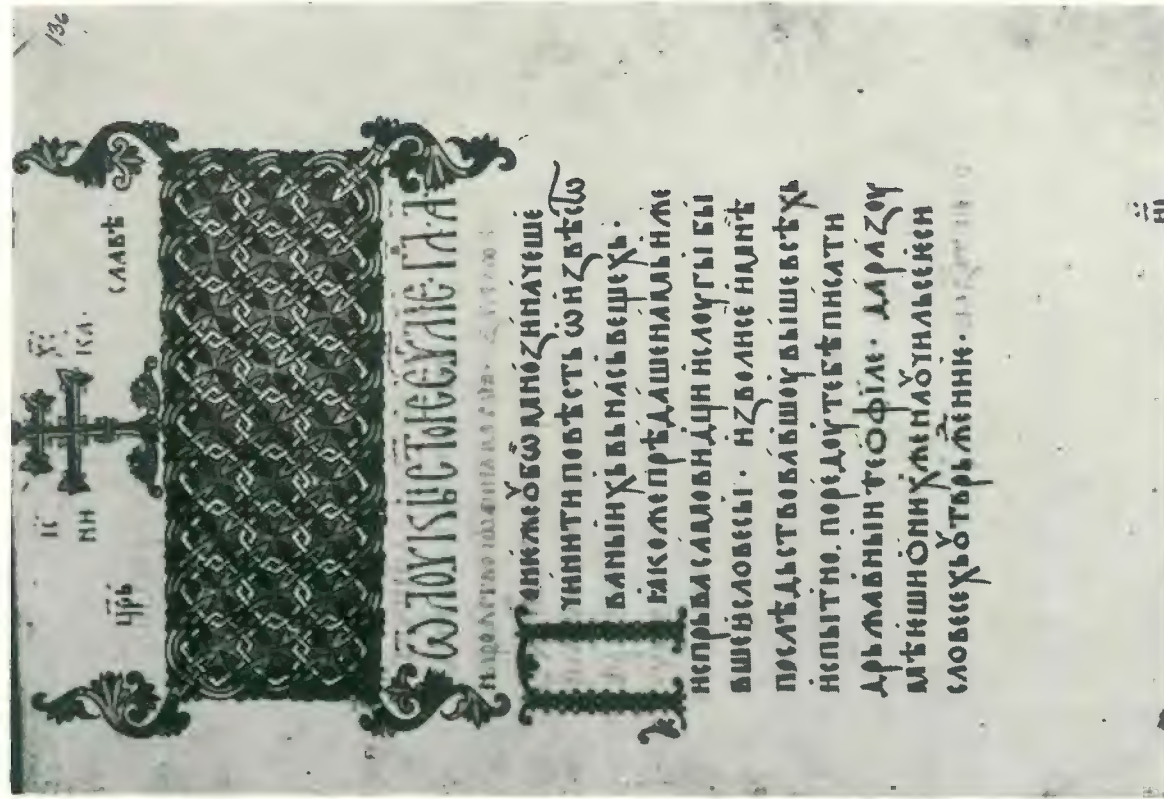 136
ц҃рь і҃с х҃с славѣ
ни ка·
ѿ лоукы с҃тое еѵ҃лїе· гл҃· а҃
Понѥже ѹбѡ мнозїи начеше
чинити повѣсть ѡ извѣсто
ванныихь вь нась вещехь·
ꙗкоже прѣдаше намь иже
испрьва самовидци и слоугы бы
вшеи словесы· изволисе и мнѣ
послѣдьствовавшоу выше всѣхь
испытно, по редоу тебѣ писати
дрьжавныи теофїле· да разоу
мѣеши ѡ нихже наѹчиль се ѥси
словесехь ѹтврьжение·